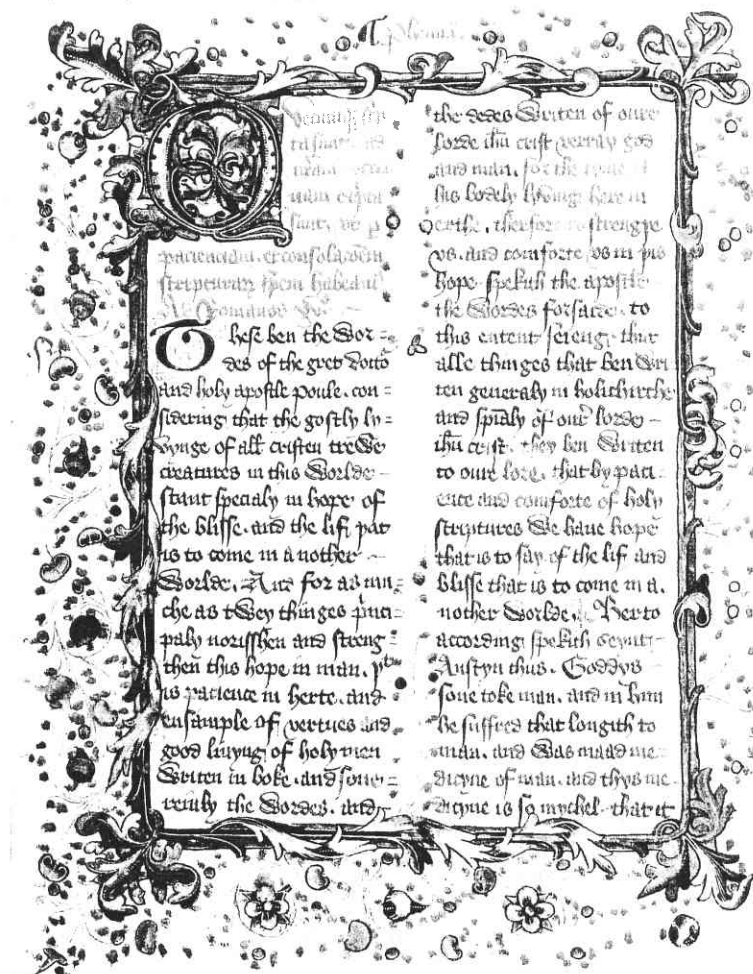 ta sunt ad
sunt, vt p
pacienciam et consolacōem
scripturarꝝ spem habeamꝰ
Ad Romanos
These ben the wor-
des of the gret docto
and holy apostle poule. con=
sidering that the gostly ly=
vynge of all cristen trewe
creatures in this worlde
stant specialy in hope of
the blisse. and the lif þat
is to come in a nother
worlde. And for as mu=
che as twey thinges pͥnci=
paly norisshen and streng=
then this hope in man. þͭ
is pacience in herte. and
ensample of vertues and
good liuyng of holy men
writen in boke. and soue=
reinly the wordes. and
the dedes writen of oure
lorde ihū crist verray god
and man. for the tyme of
his bodely lyving here in
erthe. therfore to strengþe
vs. and comforte vs in þis
hope spekith the apostle
the wordes forsaide. to
this entent seieng that
alle thinges that ben wri
ten generaly in holichirche
and spāly of ourͤ lorde
ihū crist. they ben writen
to oure lore. that by paci
ence and comforte of holy
scriptures we have hope
that is to say of the lif and
blisse that is to come in a.
nother worlde. Herto
according spekith seynt
Austyn thus. Goddys
sone toke man. and in him
he suffred that longith to
man. and was maad me
dicyne of man. and thys me
dicyne is so mychel. that it